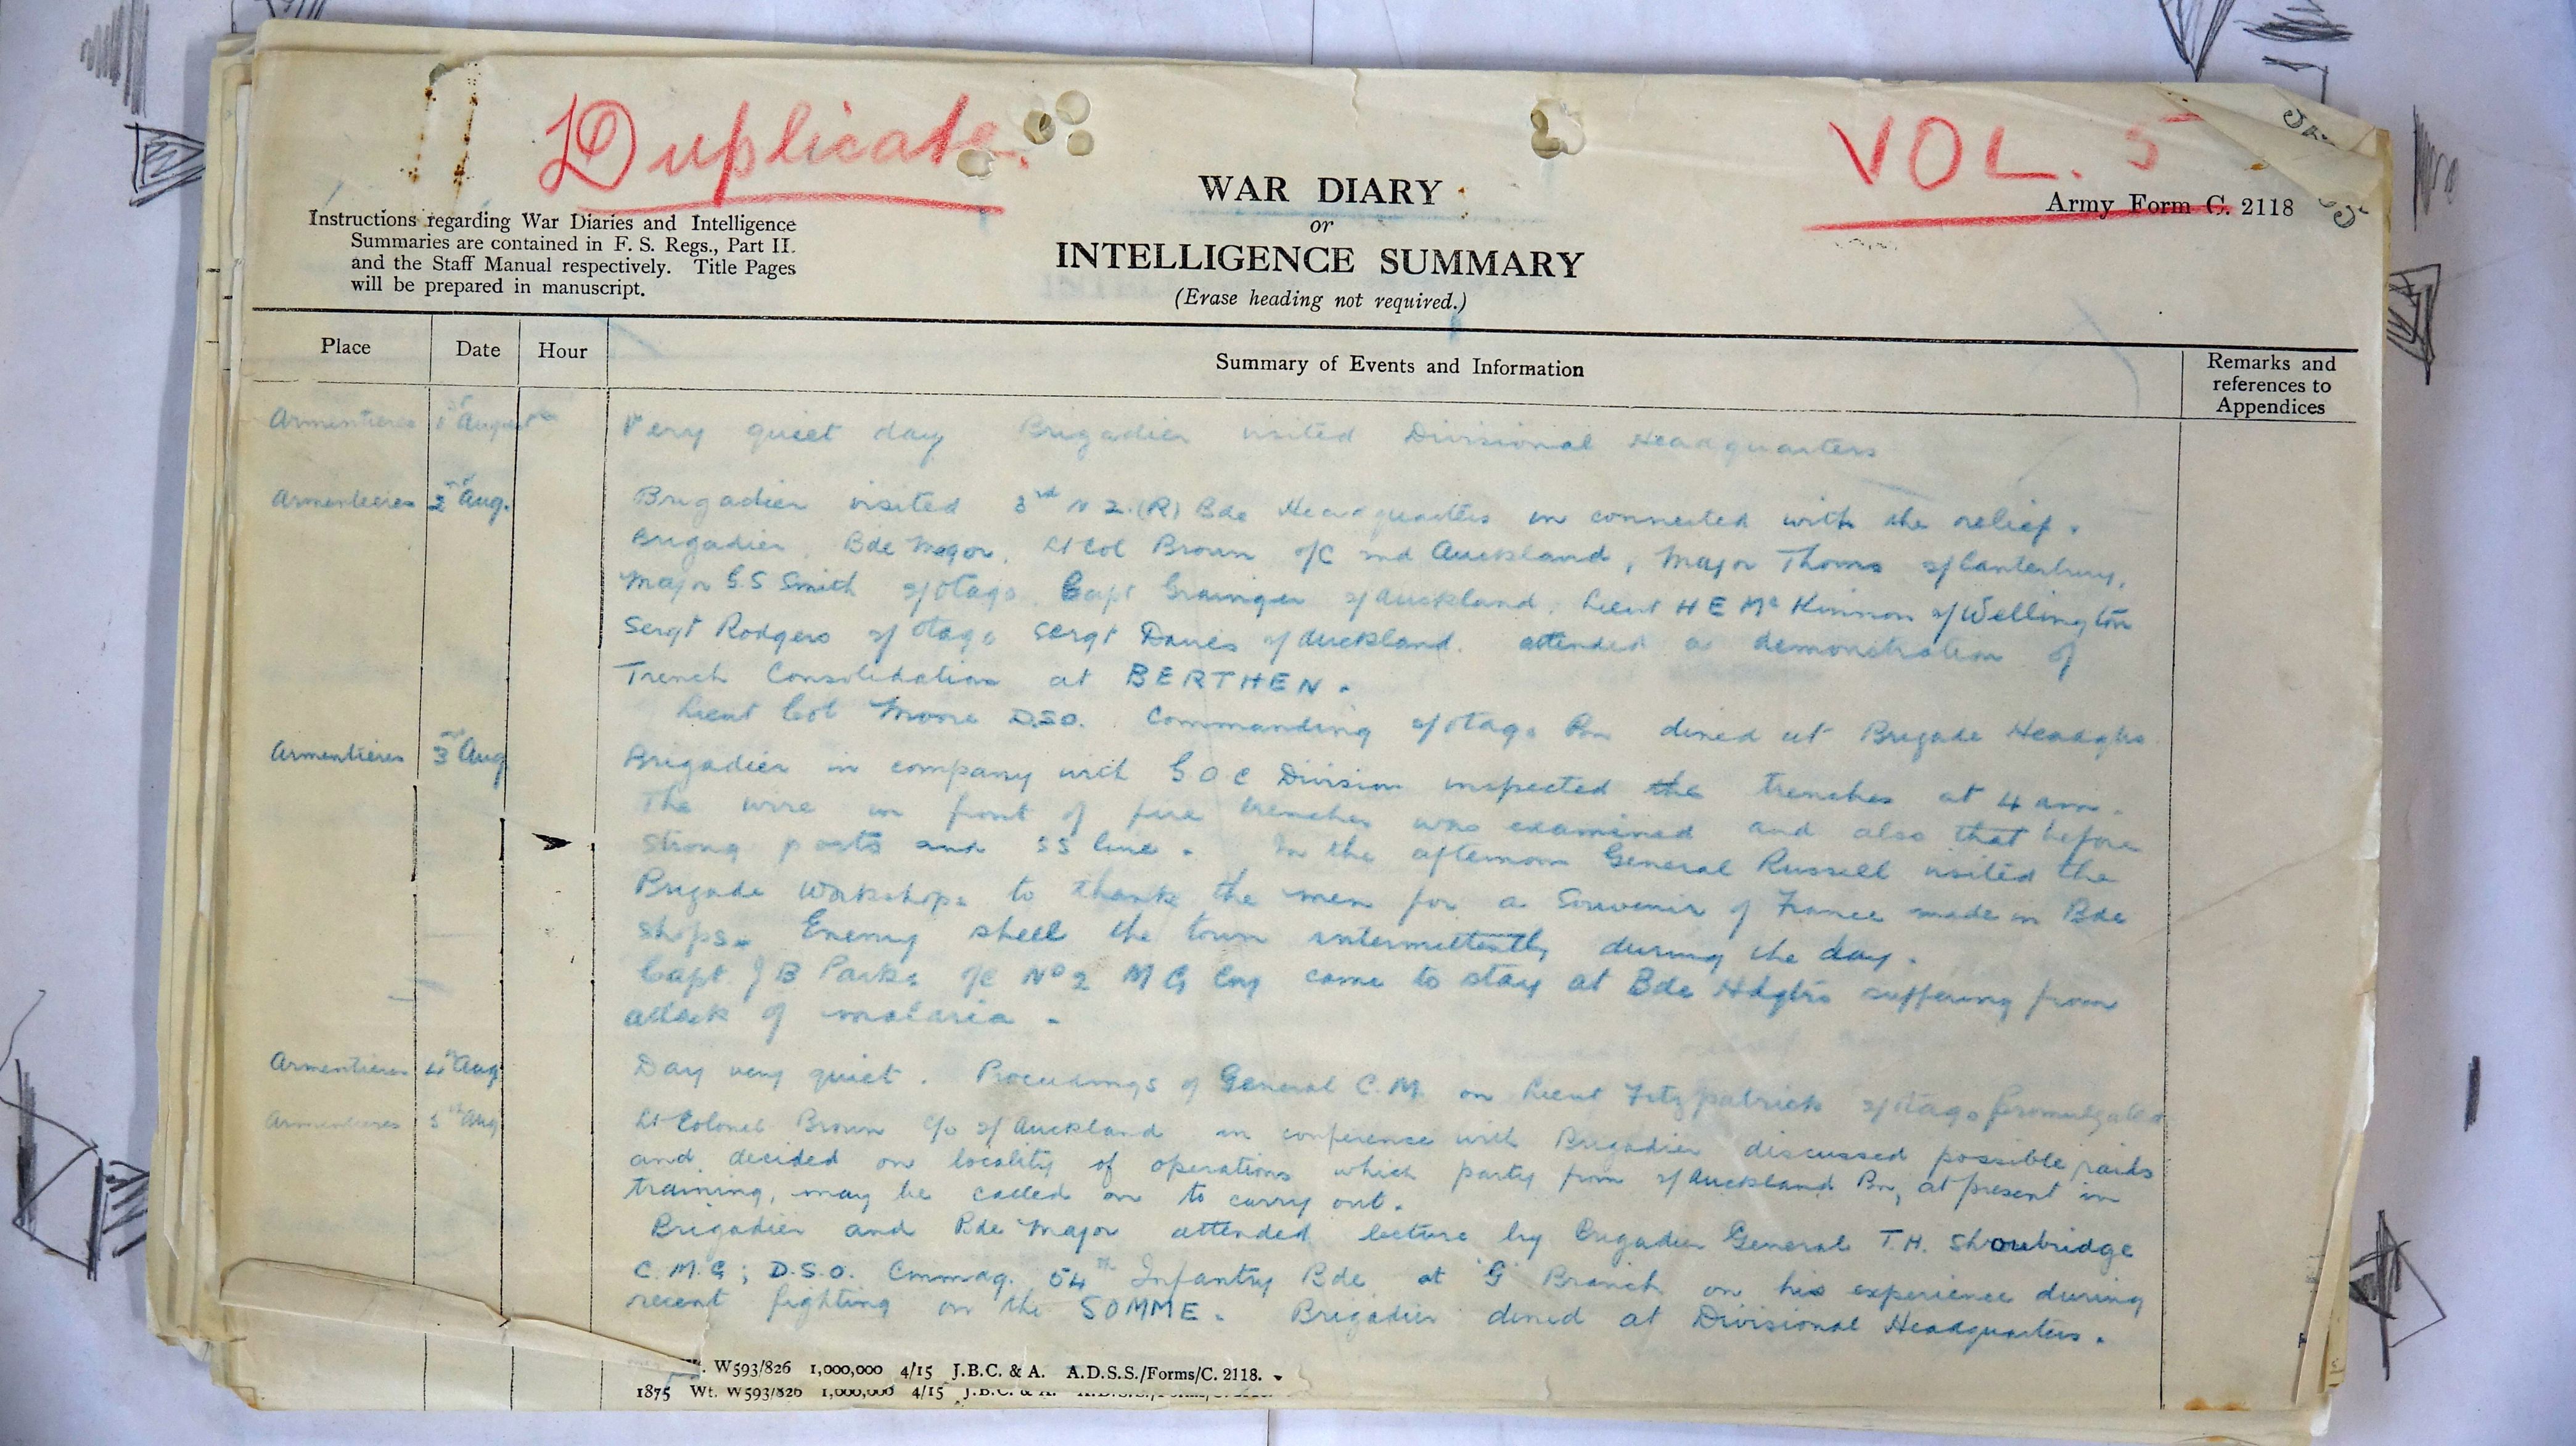 Duplicate.
VOL. 5
Instructions regarding War Diaries and Intelligence
Summaries are contained in F. S. Regs., Part II.
and the Staff Manual respectively. Title Pages
will be prepared in manuscript.
WAR DIARY
or
INTELLIGENCE SUMMARY
(Erase heading not required.)
Army Form C. 2118
Place Date Hour Summary of Events and Information Remarks and
references to
Appendices
Armentieres 1st August Very quiet day Brigadier visited Divisional Headquarters
Armentieres 2nd Aug. Brigadier visited 3rd N Z.(R) Bde Headquarters in connected with the relief.
Brigadier, Bde Major, Lt Col Brown o/c 2nd Auckland, Major Thoms 2/Canterbury,
Major G.S Smith 2/Otago Capt Grainger 2/Auckland, Lieut H E McKinnon 2/Wellington
Sergt Rodgers 2/Otago Sergt Davies 2/Auckland. attended a demonstration of
Trench Consolidation at BERTHEN.
Lieut Col Moore D.SO. Commanding 2/Otago Bn dined at Brigade Headqrs
Armentieres 3rd Aug Brigadier in company with G O C Division inspected the trenches at 4 am.
The wire in front of fire trenches was examined and also that before
strong posts and SS line. In the afternoon General Russell visited the
Brigade Workshops to thank the men for a Souvenir of France made in Bde
shops. Enemy shell the town intermittently during the day.
Capt. J B Parks o/c No 2 M G Coy came to stay at Bde Hdqtrs suffering from
attack of malaria -
Armentieres 4th Aug Day very quiet. Proceedings of General C.M. on Lieut Fitzpatrick 2/Otago promulgated
Armentieres 5th Aug Lt Colonel Brown C/o 2/Auckland in conference with Brigadier discussed possible raids
and decided on locality of operations which party from 2/Auckland Bn, at present in
training, may be called on to carry out.
Brigadier and Bde Major attended lecture by Brigadier General T.H. Shoubridge
C.M.G; D.S.O. Cmmdg. 54th Infantry Bde at 'G' Branch on his experience during
recent fighting on the SOMME. Brigadier dined at Divisional Headquarters.
. W593/826 1,000,000 4/15 J.B.C. & A. A.D.S.S./Forms/C. 2118.
1875 Wt. W593/826 1,000,000 4/15 J.B.C. & A.